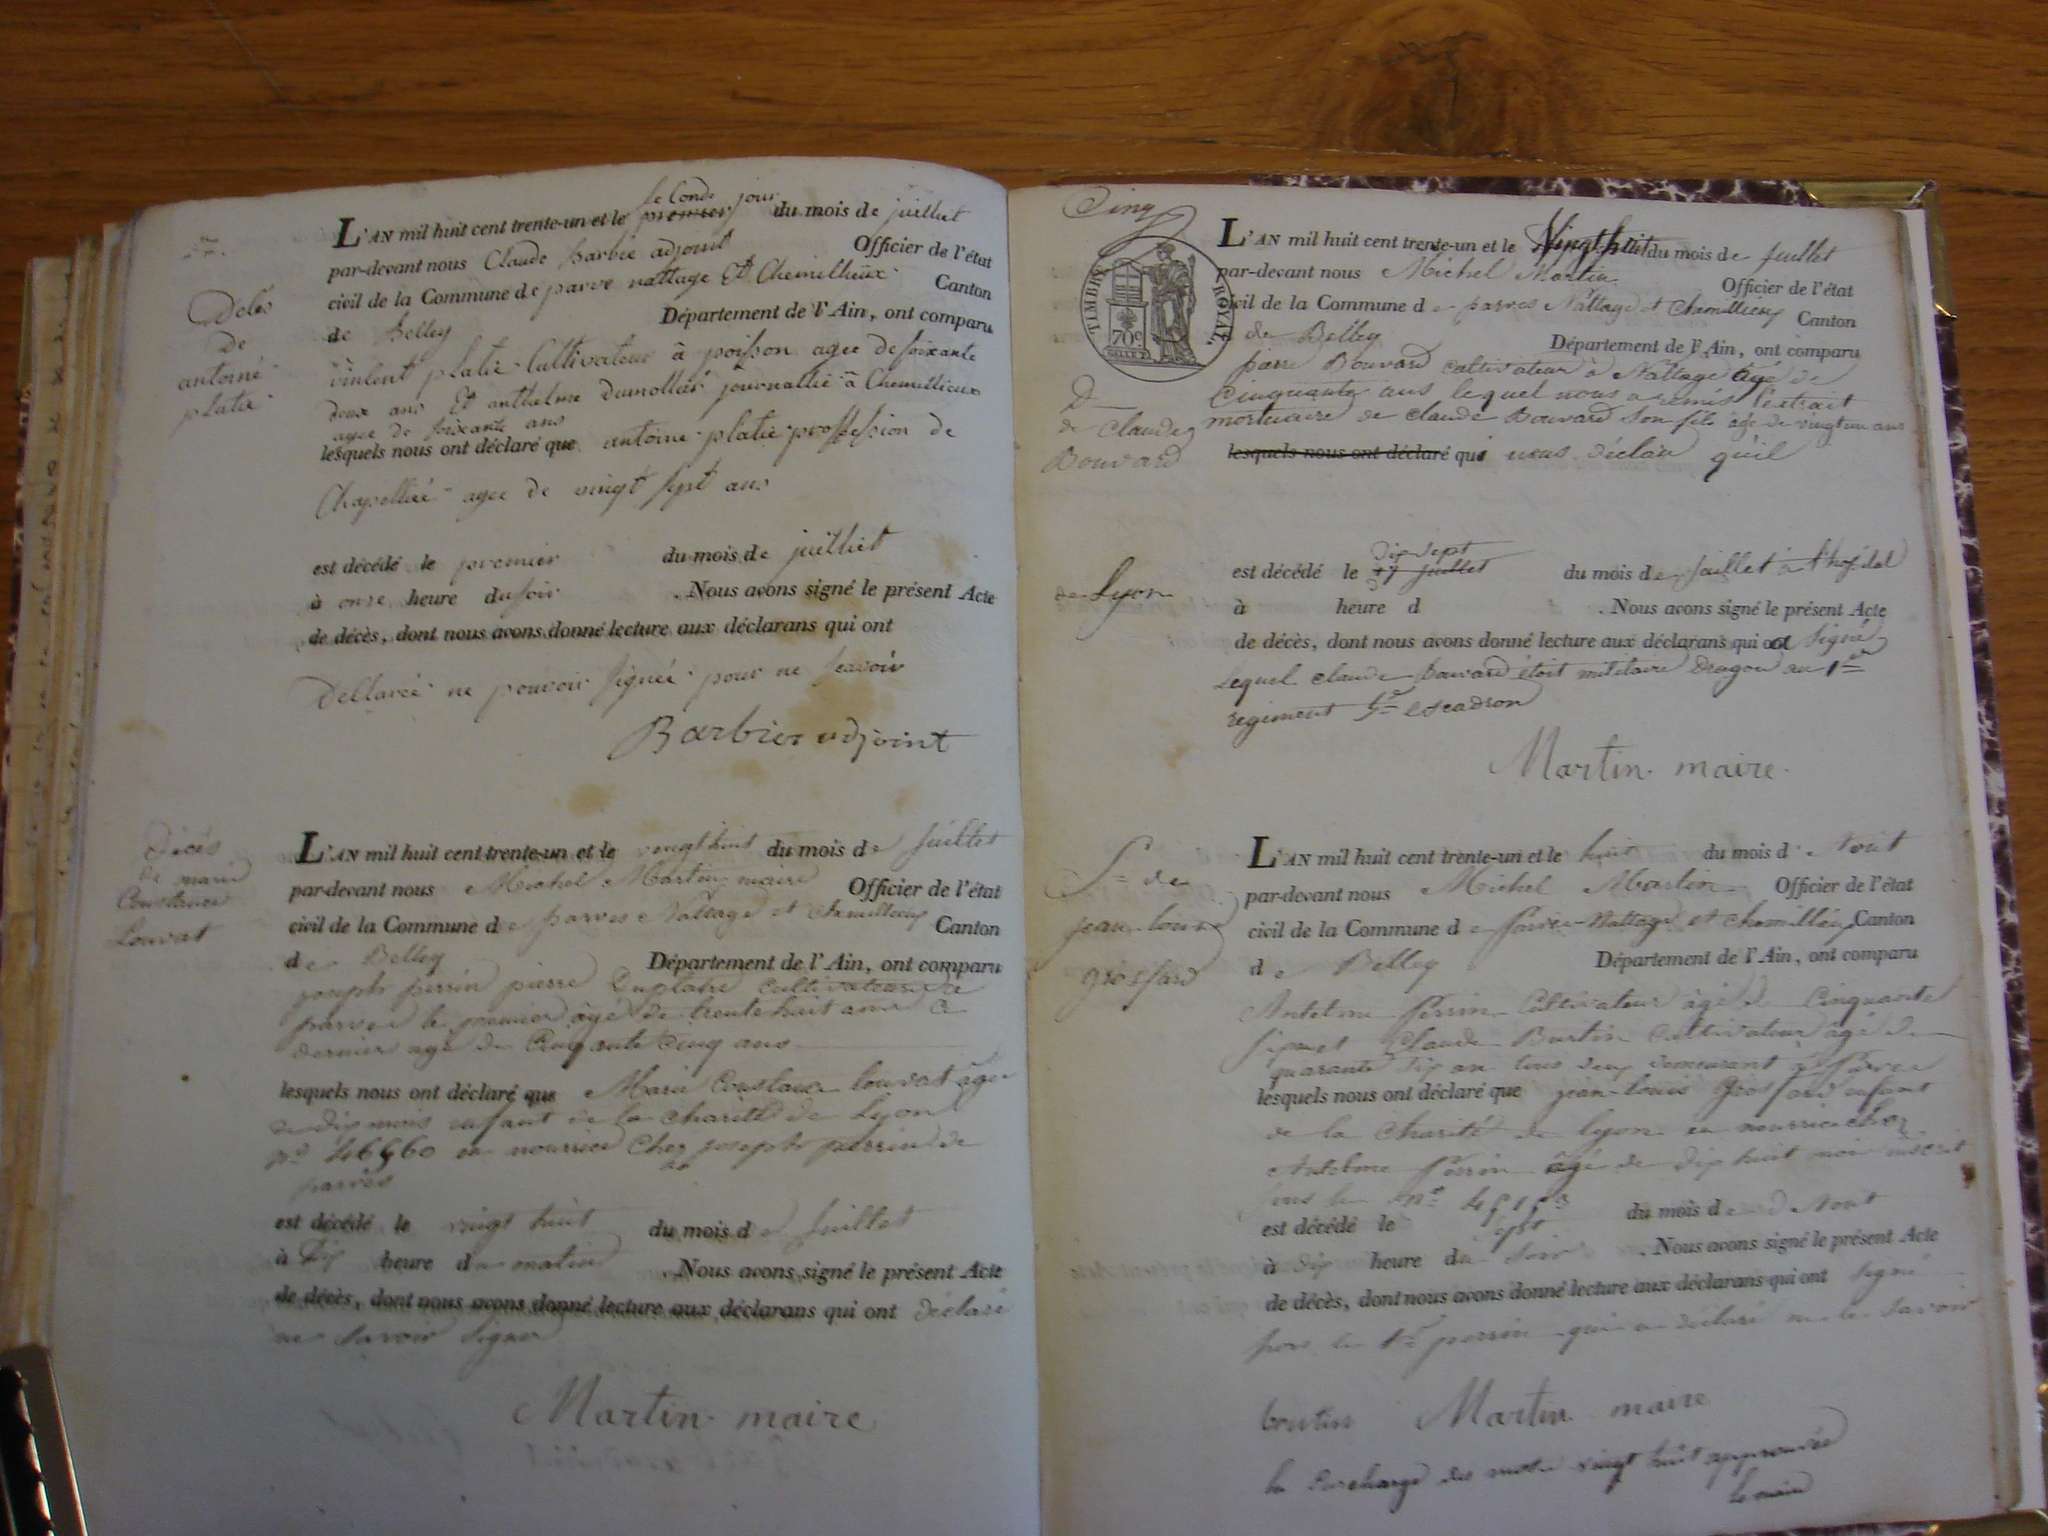 Decès
de
antoine
platie
seconde jour
L'AN mil huit cent trente-un et le premier du mois de juilliet
par-devant nous Claude Barbie adjoint Officier de l'état
civil de la Commune de parve nattage Et Chemillieux Canton
de Belley Département de l'Ain, ont comparu
vinlent platie Cultivateur à poisson agee de soixante
deux ans Et anthelme Dumollar journallié à Chemillieux
agee de soixante ans
lesquels nous ont déclaré que antoine platie proffession de
Chapellié agee de vingt sept ans
est décédé le premier du mois de juilliet
à onze heure du soir . Nous avons signé le présent Acte
de décès, dont nous avons donné lecture aux déclarans qui ont
Dellareé ne pouvoir signeé pour ne scavoir
Barbier adjoint
Décès
de marie
Constance
Louvat
L'AN mil huit cent trente-un et le vingt huit du mois de Juillet
par-devant nous Michel Martin maire Officier de l'état
civil de la Commune de parves Nattage et Chemillieu Canton
de Belley Département de l'Ain, ont comparu
joseph perrin pierre cultivateurs à
parves le premier âgé de trente huit ans Ce
dernier agé de Cinquante Cinq ans
lesquels nous ont déclaré que Marie Constance Louvat âgée
de dix mois enfant de la charité de Lyon
nº 46660 en nourrice chez joseph perrin de
parves
est décédé le vingt huit du mois de Juillet
à Dix heure du matin . Nous avons signé le présent Acte
de décès, dont nous avons donné lecture aux déclarans qui ont déclaré
ne savoir signer
Martin maire
Cinq
TIMBRE ROYAL
70c
D
de Claude
Bouvard
L'AN mil huit cent trente-un et le Vingt huit du mois de Juillet
par-devant nous Michel Martin Officier de l'état
civil de la Commune de parves Nattage et Chemillieu Canton
de Belley Département de l'Ain, ont comparu
pierre Bouvard cultivateur à Nattage âgé de
Cinquante ans lequel nous a remis l'extrait
mortuaire de Claude Bouvard son fils âgé de vingt un ans
lesquels nous ont déclaré qui nous déclare qu'il
dix sept
est décédé le 17 Juillet du mois de Juillet à l'hopital
de Lyon à heure d . Nous avons signé le présent Acte
de décès, dont nous avons donné lecture aux déclarans qui a signé
Lequel Claude Bouvard étoit militaire Dragon au 1er
regiment 5e escadron
Martin maire
de
jean louis
grosfard
L'AN mil huit cent trente-un et le huit du mois d'Aout
par-devant nous Michel Martin Officier de l'état
civil de la Commune de Parves Nattage et Chemillieu Canton
de Belley Département de l'Ain, ont comparu
Antelme Perrin Cultivateur âgé de Cinquante
sept et Claude Burtin Cultivateur âgé de
quarante six an tous deux demeurant à Parve
lesquels nous ont déclaré que jean-louis grosfard enfant
de la Charité de lyon en nourrice chez
Antelme Perrin âgé de dix huit mois inscrit
sous le nº
est décédé le sept du mois d'Aout
à dix heure du soir . Nous avons signé le présent Acte
de décès, dont nous avons donné lecture aux déclarans qui ont signé
hors le perrin qui a déclaré ne le savoir
Martin maire
la surcharge des mots vingt huit approuvée
le maire